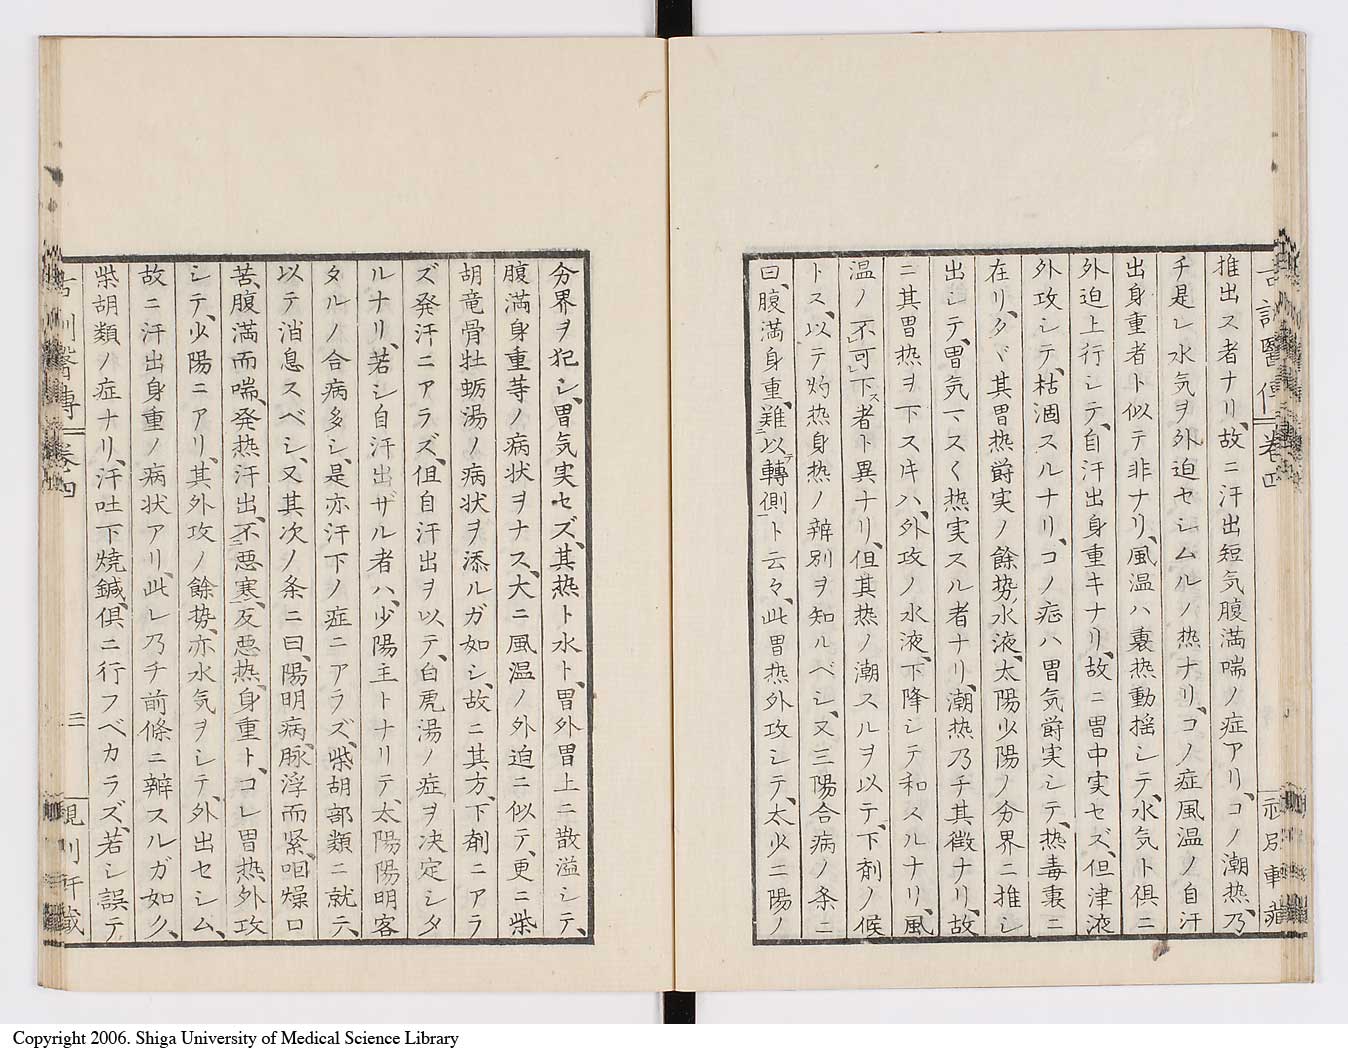 推出ス者ナリ、故ニ汗出短気腹満喘ノ症アリ、コノ潮熱、乃
チ是レ水気ヲ外迫セシムルノ热ナリ、コノ症風温ノ自汗
出身重者ト似テ非ナリ、風温ハ裏热動揺シテ、水気ト倶ニ
外迫上行シテ、自汗出身重キナリ、故ニ胃中実セズ、但津液
外攻シテ、枯涸スルナリ、コノ症ハ胃気欝実シテ、热毒裏ニ
在リ、タヾ其胃热欝実ノ餘势水液、太陽少陽ノ分界ニ推シ
出シテ、胃気マスく热実スル者ナリ、潮热乃チ其徴ナリ、故
ニ其胃热ヲ下スキハ、外攻ノ水液、下降シテ和スルナリ、風
温ノ不可下ス者ト異ナリ、但其热ノ潮スルヲ以テ、下剤ノ候
トス、以テ灼热身热ノ辨別ヲ知ルベシ、又三陽合病ノ条ニ
曰、腹満身重、難ニ以テ轉側一ト云々、此胃热外攻シテ、太少二陽ノ
分界ヲ犯シ、胃気実セズ、其热ト水ト、胃外胃上ニ散溢シテ、
腹満身重等ノ病状ヲナス、大ニ風温ノ外迫ニ似テ、更ニ柴
胡竜骨牡蛎湯ノ病状ヲ添ルガ如シ、故ニ其方、下剤ニアラ
ズ発汗ニアラズ、但自汗出ヲ以テ、白虎湯ノ症ヲ决定シタ
ルナリ、若シ自汗出ザル者ハ、少陽主トナリテ、太陽陽明客
タルノ合病多シ、是亦汗下ノ症ニアラズ、柴胡部類ニ就テ、
以テ消息スベシ、又其次ノ条ニ曰、陽明病、脉浮而緊、咽燥口
苦、腹満而喘、発热汗出、不ニ悪寒一、反悪热、身重ト、コレ胃热外攻
シテ、少陽ニアリ、其外攻ノ餘势、亦水気ヲシテ、外出セシム、
故ニ汗出身重ノ病状アリ、此レ乃チ前條ニ辨スルガ如ク、
柴胡類ノ症ナリ、汗吐下焼鍼、倶ニ行フベカラズ、若シ誤テ
三
Copyright 2006. Shiga University of Medical Science Library